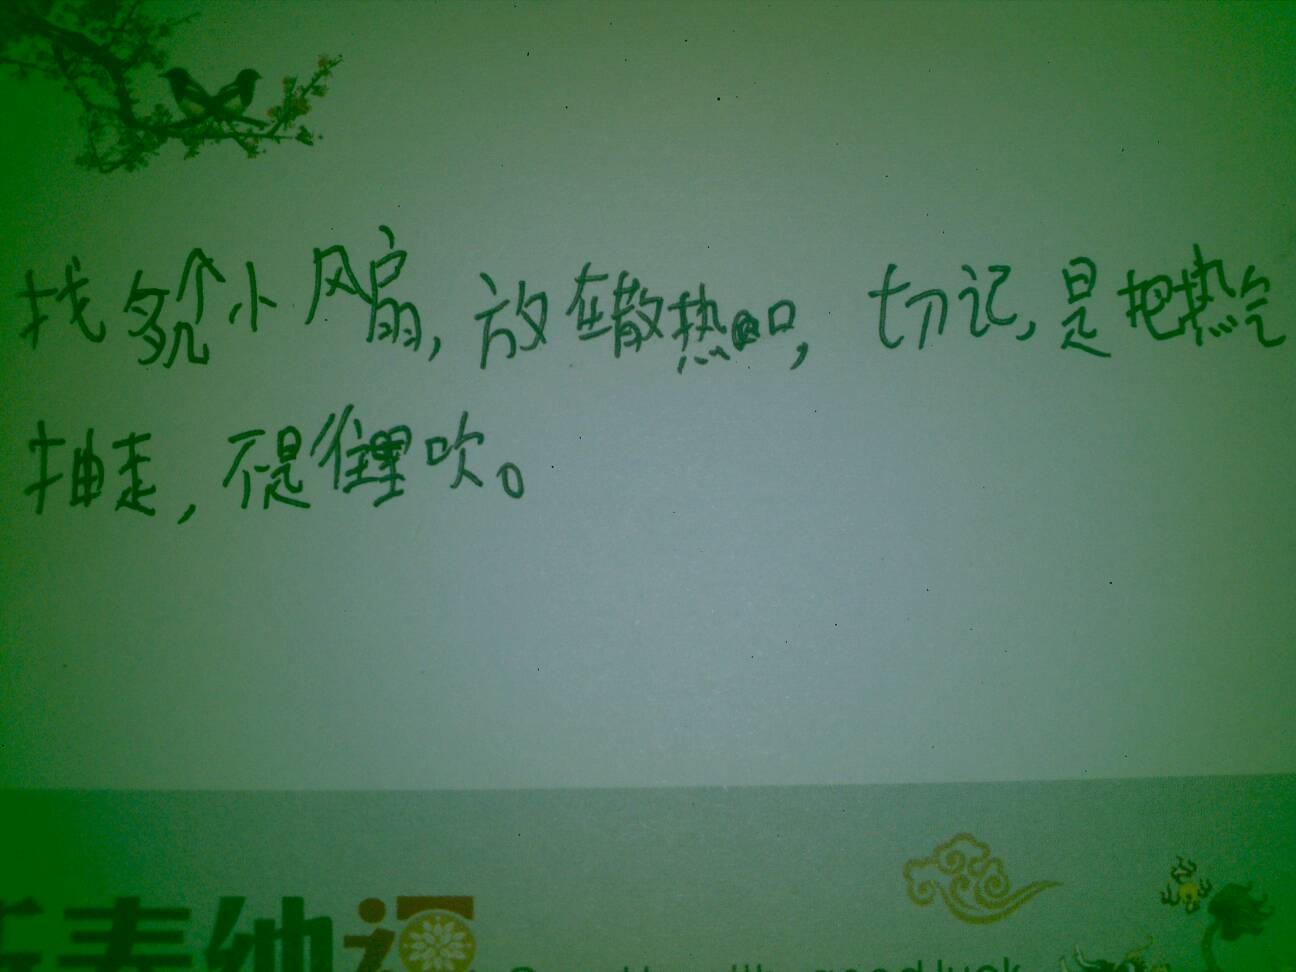 找多几个小风扇,放在散热口,切记,是把热气
抽走,不是往里吹。
good luck